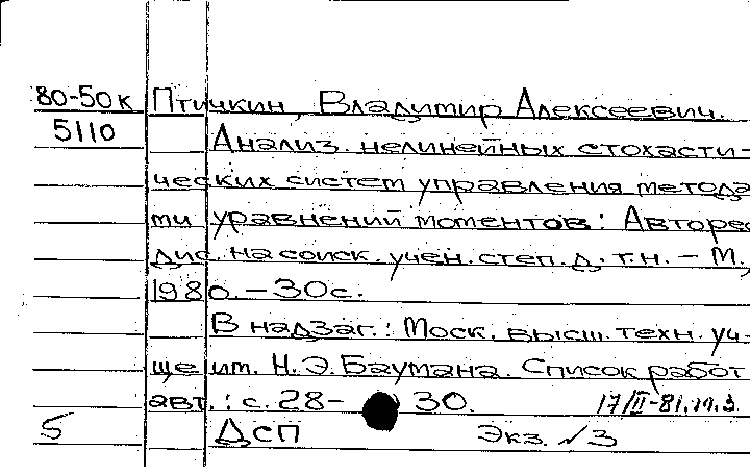 80-50к Птичкин, Владимир Алексеевич.
5110 Анализ нелинейных стохасти-
ческих систем управления метода
ми уравнений моментов: Авторе
дис. на соиск. учен. степ. д. т.н. – М.,
1980. – 30с.
В надзаг.: Моск. высш. техн. уч-
ще им. Н.Э. Баумана. Список работ
авт.: с. 28- 30. 17/II-81.
5 ДСП Экз. √3